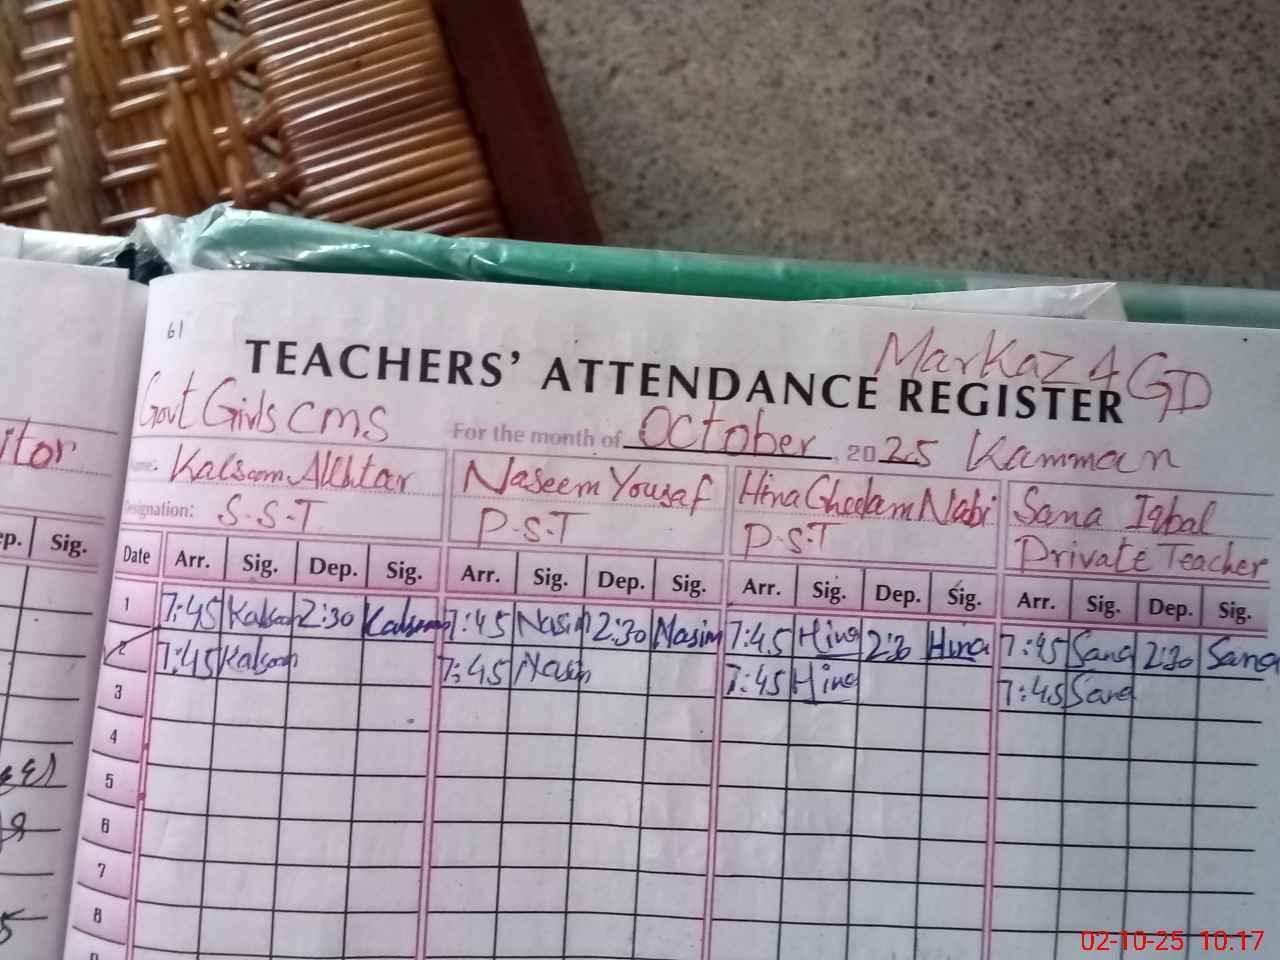 61
Markaz 4 GD
TEACHERS' ATTENDANCE REGISTER
Govt Girls CMS For the month of October, 2025 Kamman
itor
Name: Kalsoom Akhtar Naseem Yousaf Hina Ghulam Nabi Sana Iqbal
Designation: S.S.T P.S.T P.S.T Private Teacher
ep. Sig. Date Arr. Sig. Dep. Sig. Arr. Sig. Dep. Sig. Arr. Sig. Dep. Sig. Arr. Sig. Dep. Sig.
1 7:45 Kalsoom 2:30 Kalsoom 7:45 Nasim 2:30 Nasim 7:45 Hina 2:30 Hina 7:45 Sana 2:30 Sana
2 7:45 Kalsoom 7:45 Nasim 7:45 Hina 7:45 Sana
3
4
5
6
7
8
02-10-25 10.17